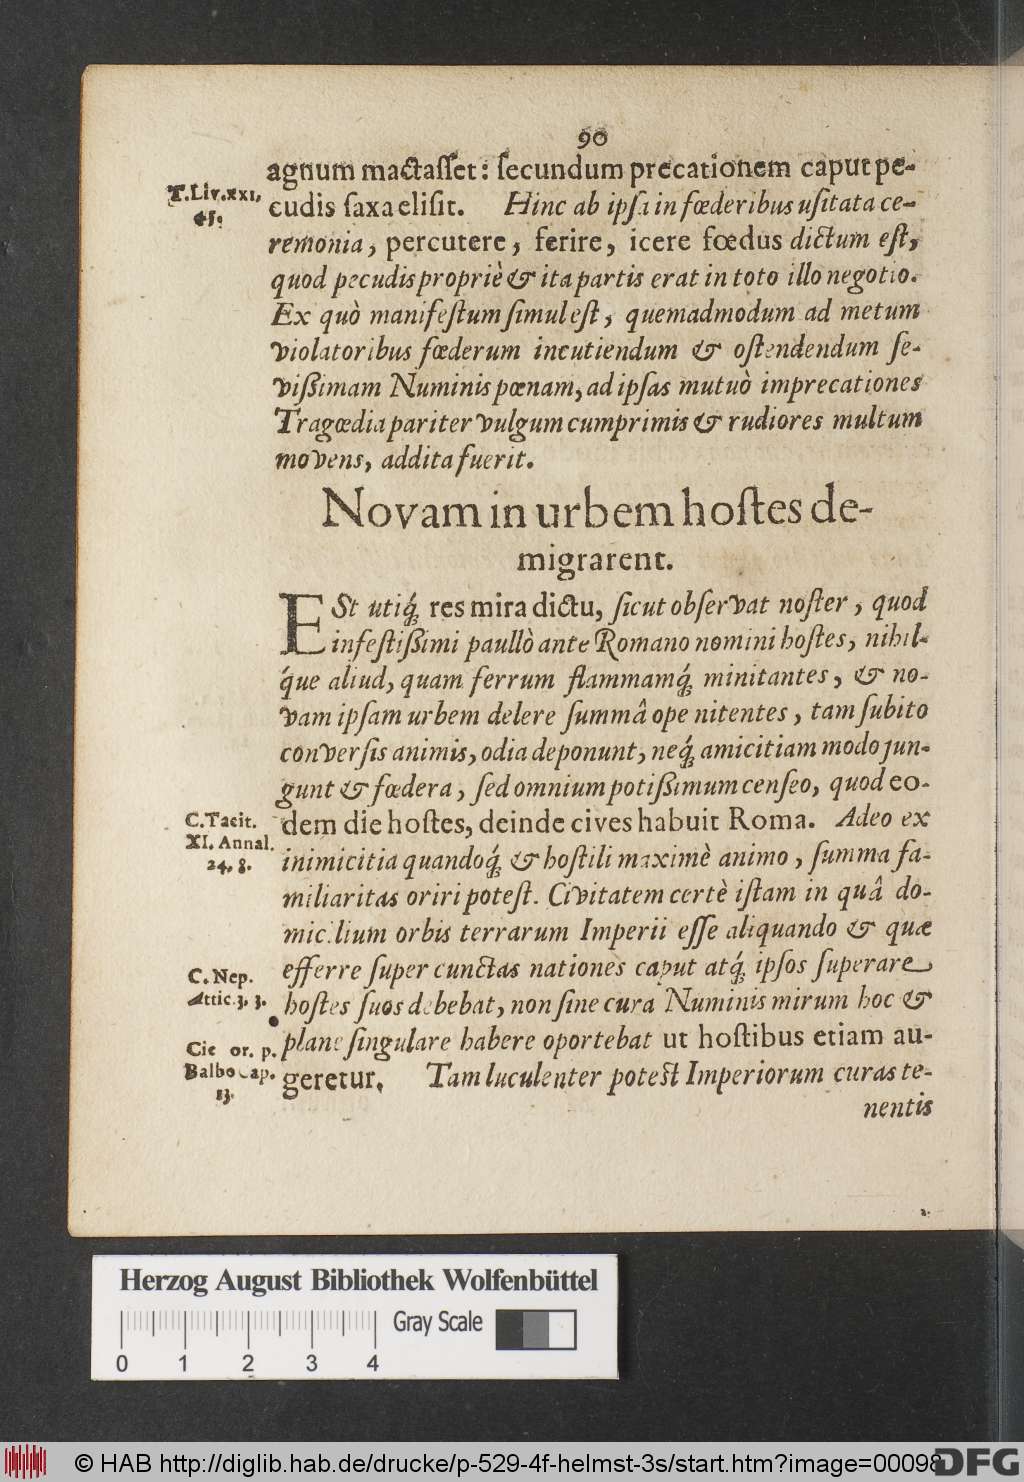 90
agnum mactaſſet: ſecundum precationem caput pe-
T. Liv. XXI,
45.
cudis ſaxa eliſit. Hinc ab ipſa in fœderibus uſitata ce-
remonia, percutere, ferire, icere fœdus dictum eſt,
quod pecudis propriè & ita partis erat in toto illo negotio.
Ex quò manifeſtum ſimul eſt, quemadmodum ad metum
violatoribus fœderum incutiendum & oſtendendum ſe-
viſſimam Numinis pœnam, ad ipſas mutuò imprecationes
Tragœdia pariter vulgum cumprimis & rudiores multum
movens, addita fuerit.
Novam in urbem hoſtes de-
migrarent.
ESt utiq́; res mira dictu, ſicut obſervat noſter, quod
infeſtiſſimi paullò ante Romano nomini hoſtes, nihil-
q́ue aliud, quam ferrum flammamq́; minitantes, & no-
vam ipſam urbem delere ſummâ ope nitentes, tam ſubito
converſis animis, odia deponunt, neq́; amicitiam modo jun-
gunt & fœdera, ſed omnium potiſſimum cenſeo, quod eo-
C. Tacit.
XI. Annal.
24, 8.
dem die hoſtes, deinde cives habuit Roma. Adeo ex
inimicitia quandoq́; & hoſtili maximè animo, ſumma fa-
miliaritas oriri poteſt. Civitatem certè iſtam in quâ do-
micilium orbis terrarum Imperii eſſe aliquando & quæ
C. Nep.
Attic. 3, 3.
efferre ſuper cunctas nationes caput atq́; ipſos ſuperare
hoſtes ſuos debebat, non ſine cura Numinis mirum hoc &
Cic or. p.
Balbo cap.
13.
plane ſingulare habere oportebat ut hoſtibus etiam au-
geretur. Tam luculenter poteſt Imperiorum curas te-
nentis
Herzog August Bibliothek Wolfenbüttel
Gray Scale
0 1 2 3 4
© HAB http://diglib.hab.de/drucke/p-529-4f-helmst-3s/start.htm?image=00098
DFG